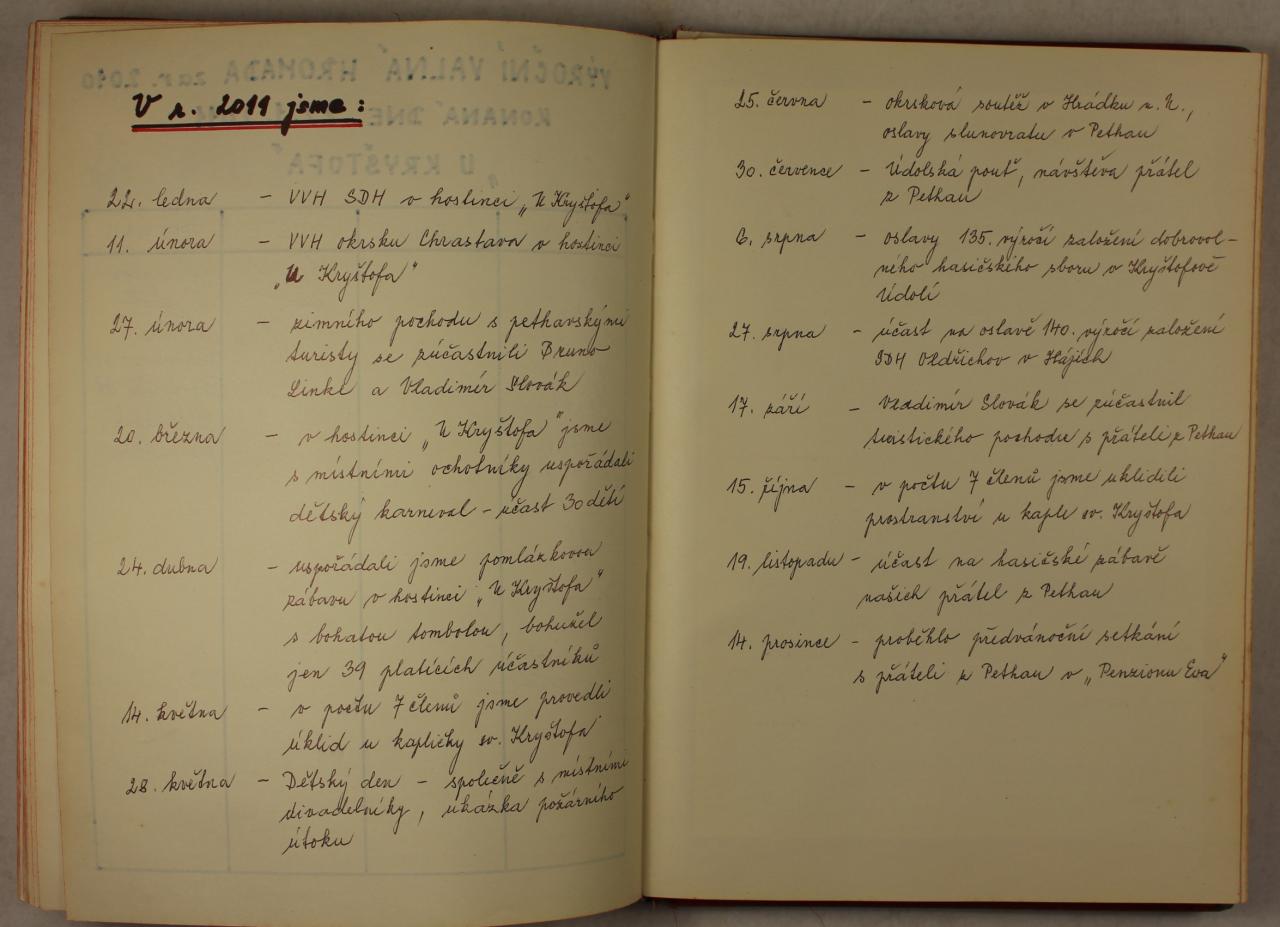 V r. 2011 jsme:
22. ledna - VVH SDH v hostinci „U Kryštofa"
11. února - VVH okrsku Chrastava v hostinci
„U Kryštofa"
27. února - zimního pochodu s pethavskými
turisty se zúčastnili Bruno
Linke a Vladimír Slovák
20. března - v hostinci „U Kryštofa" jsme
s místními ochotníky uspořádali
dětský karneval - účast 30 dětí
24. dubna - uspořádali jsme pomlázkovou
zábavu v hostinci „U Kryštofa"
s bohatou tombolou, bohužel
jen 39 platících účastníků
14. května - v počtu 7 členů jsme provedli
úklid u kapličky sv. Kryštofa
28. května - Dětský den - společně s místními
divadelníky, ukázka požárního
útoku
25. června - okrsková soutěž v Hrádku n. N.,
oslavy slunovratu v Pethau
30. července - Údolská pouť, návštěva přátel
z Pethau
6. srpna - oslavy 135. výročí založení dobrovol-
ného hasičského sboru v Kryštofově
Údolí
27. srpna - účast na oslavě 140. výročí založení
SDH Oldřichov v Hájích
17. září - Vladimír Slovák se zúčastnil
turistického pochodu s přáteli z Pethau
15. října - v počtu 7 členů jsme uklidili
prostranství u kaple sv. Kryštofa
19. listopadu - účast na hasičské zábavě
našich přátel z Pethau
14. prosince - proběhlo předvánoční setkání
s přáteli z Pethau v „Penzionu Eva"